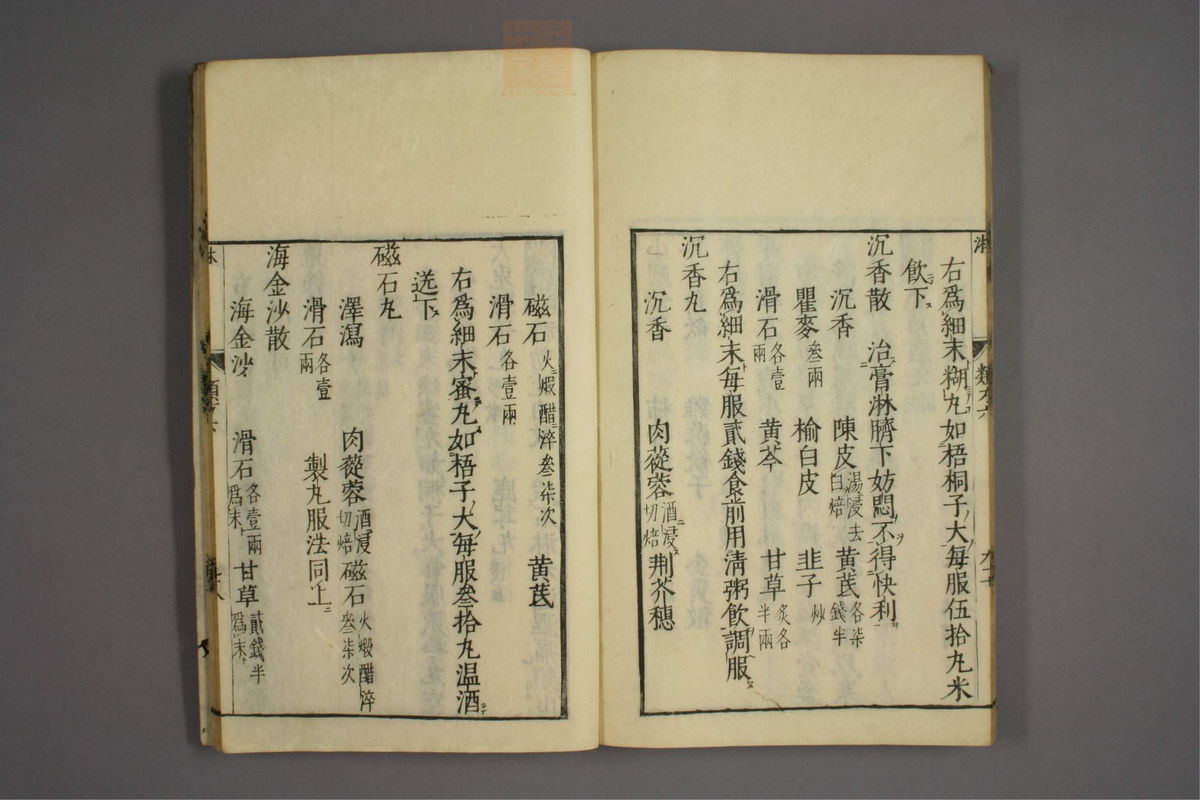 右爲細末糊丸如梧桐子大每服伍拾丸米
飲下
沉香散 治膏淋臍下妨悶不得快利
沉香 陳皮湯浸去白焙 黃芪各柒錢半
瞿麥叁兩 榆白皮 韭子炒
滑石各壹兩 黃芩 甘草炙各半兩
右爲細末每服貳錢食前用清粥飲調服
沉香丸
沉香 肉蓯蓉酒浸切焙 荆芥穗
磁石火煅醋淬叁柒次 黃芪
滑石各壹兩
右爲細末蜜丸如梧子大每服叁拾丸温酒
送下
磁石丸
澤瀉 肉蓯蓉酒浸切焙 磁石火煅醋淬叁柒次
滑石各壹兩 製丸服法同上
海金沙散
海金沙 滑石各壹兩爲末 甘草貳錢半爲末